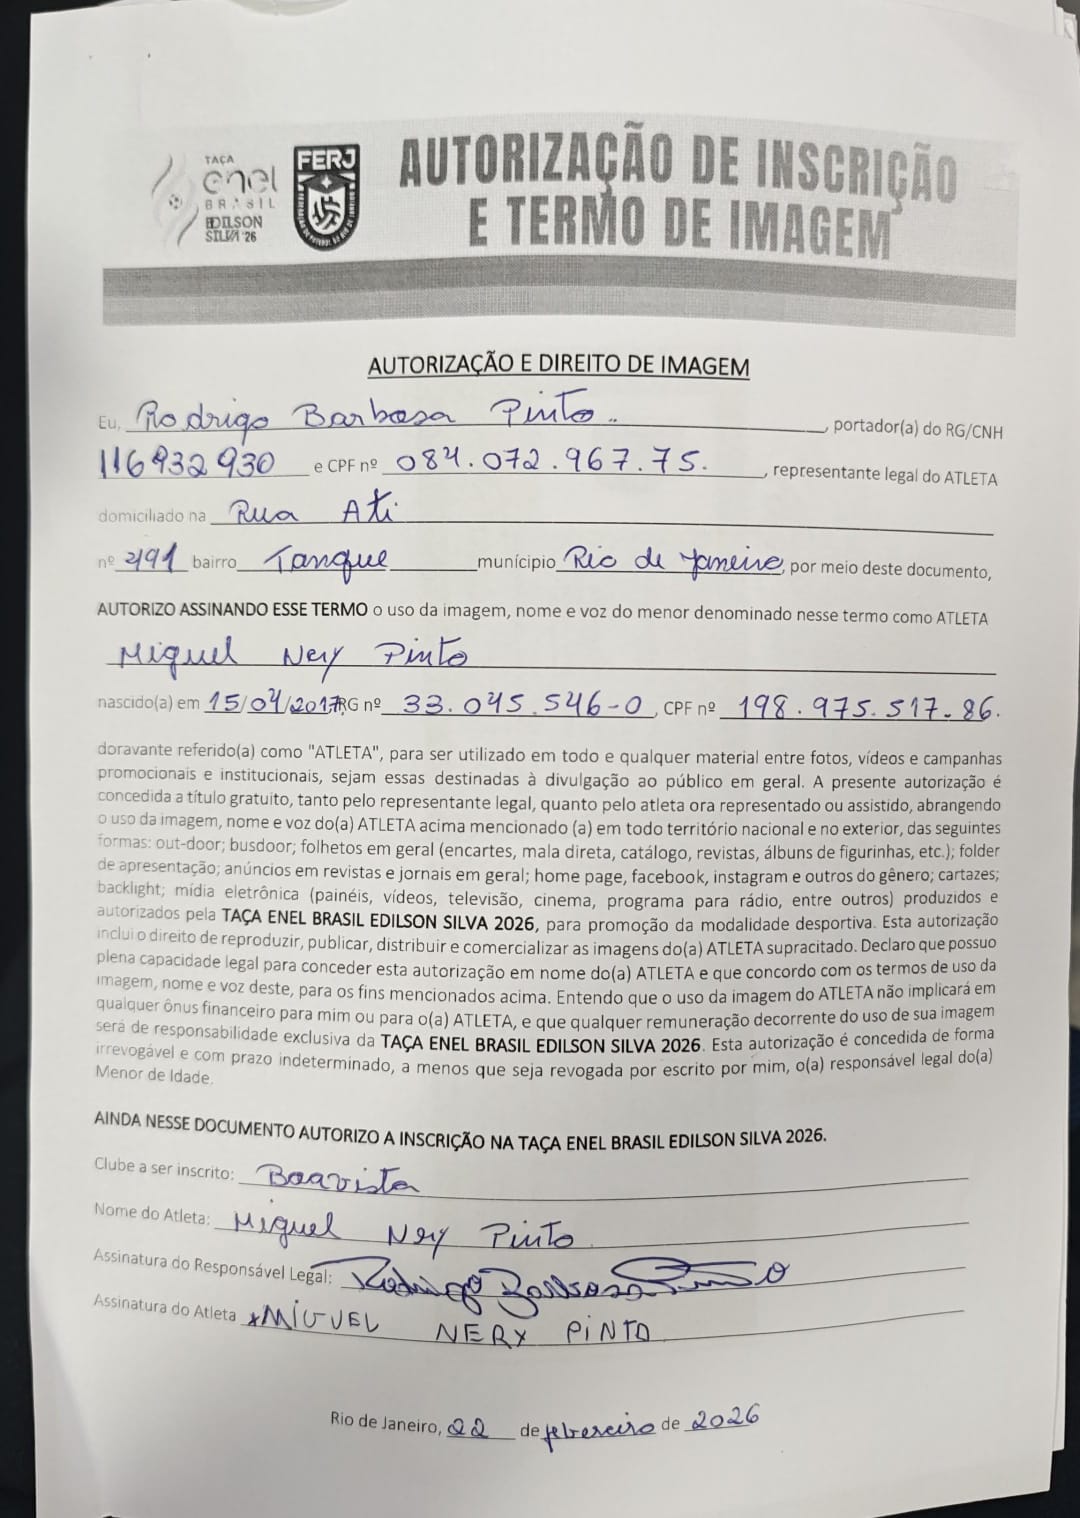 TAÇA
enel
BRASIL
EDILSON
SILVA '26
FERJ
AUTORIZAÇÃO DE INSCRIÇÃO
E TERMO DE IMAGEM
AUTORIZAÇÃO E DIREITO DE IMAGEM
Eu, Rodrigo Barbosa Pinto, portador(a) do RG/CNH
116932930 e CPF nº 084.072.967.75., representante legal do ATLETA
domiciliado na Rua Ati
nº 491 bairro Tanque munícipio Rio de Janeiro, por meio deste documento,
AUTORIZO ASSINANDO ESSE TERMO o uso da imagem, nome e voz do menor denominado nesse termo como ATLETA
Miguel Nery Pinto
nascido(a) em 15/04/2017, RG nº 33.045.546-0, CPF nº 198.975.517-86.
doravante referido(a) como "ATLETA", para ser utilizado em todo e qualquer material entre fotos, vídeos e campanhas
promocionais e institucionais, sejam essas destinadas à divulgação ao público em geral. A presente autorização é
concedida a título gratuito, tanto pelo representante legal, quanto pelo atleta ora representado ou assistido, abrangendo
o uso da imagem, nome e voz do(a) ATLETA acima mencionado (a) em todo território nacional e no exterior, das seguintes
formas: out-door; busdoor; folhetos em geral (encartes, mala direta, catálogo, revistas, álbuns de figurinhas, etc.); folder
de apresentação; anúncios em revistas e jornais em geral; home page, facebook, instagram e outros do gênero; cartazes;
backlight; mídia eletrônica (painéis, vídeos, televisão, cinema, programa para rádio, entre outros) produzidos e
autorizados pela TAÇA ENEL BRASIL EDILSON SILVA 2026, para promoção da modalidade desportiva. Esta autorização
inclui o direito de reproduzir, publicar, distribuir e comercializar as imagens do(a) ATLETA supracitado. Declaro que possuo
plena capacidade legal para conceder esta autorização em nome do(a) ATLETA e que concordo com os termos de uso da
imagem, nome e voz deste, para os fins mencionados acima. Entendo que o uso da imagem do ATLETA não implicará em
qualquer ônus financeiro para mim ou para o(a) ATLETA, e que qualquer remuneração decorrente do uso de sua imagem
será de responsabilidade exclusiva da TAÇA ENEL BRASIL EDILSON SILVA 2026. Esta autorização é concedida de forma
irrevogável e com prazo indeterminado, a menos que seja revogada por escrito por mim, o(a) responsável legal do(a)
Menor de Idade.
AINDA NESSE DOCUMENTO AUTORIZO A INSCRIÇÃO NA TAÇA ENEL BRASIL EDILSON SILVA 2026.
Clube a ser inscrito: Boavista
Nome do Atleta: Miguel Nery Pinto
Assinatura do Responsável Legal: Rodrigo Barbosa Pinto
Assinatura do Atleta MIGUEL NERY PINTO
Rio de Janeiro, 22 de febrereiro de 2026